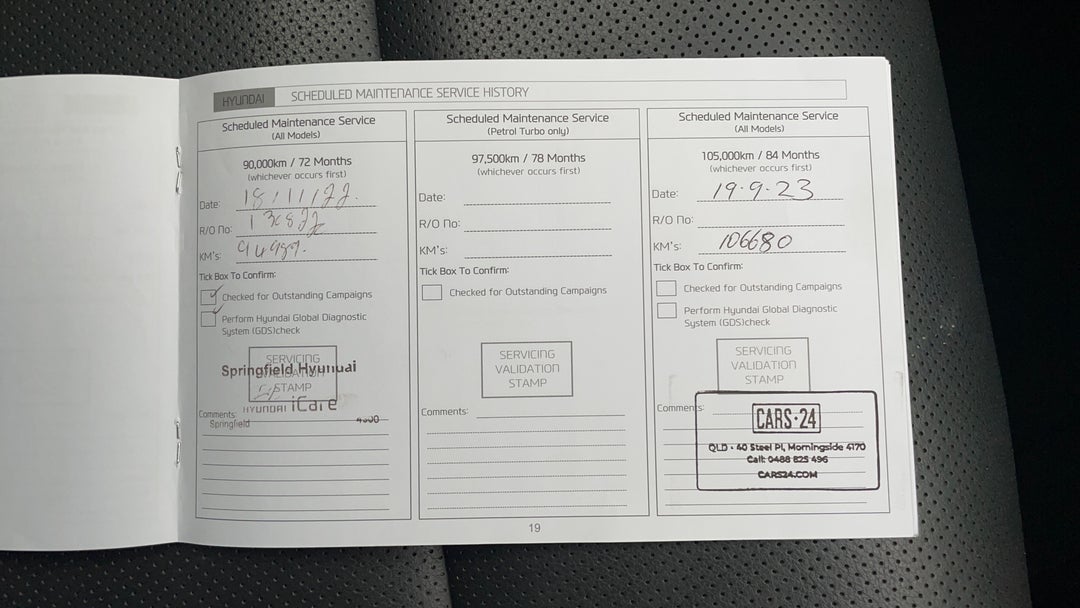 HYUNDAI SCHEDULED MAINTENANCE SERVICE HISTORY
Scheduled Maintenance Service
(All Models)
90,000km / 72 Months
(whichever occurs first)
Date: 18/11/22.
R/O No:
KM's:
Tick Box To Confirm:
Checked for Outstanding Campaigns
Perform Hyundai Global Diagnostic
System (GDS)check
SERVICING
VALIDATION
STAMP
Springfield Hyundai
HYUNDAI iCare
Comments:
Springfield
Scheduled Maintenance Service
(Petrol Turbo only)
97,500km / 78 Months
(whichever occurs first)
Date:
R/O No:
KM's:
Tick Box To Confirm:
Checked for Outstanding Campaigns
SERVICING
VALIDATION
STAMP
Comments:
Scheduled Maintenance Service
(All Models)
105,000km / 84 Months
(whichever occurs first)
Date: 19.9.23
R/O No:
KM's: 106680
Tick Box To Confirm:
Checked for Outstanding Campaigns
Perform Hyundai Global Diagnostic
System (GDS)check
SERVICING
VALIDATION
STAMP
Comments:
CARS·24
QLD - 40 Steel Pl, Morningside 4170
Call: 0488 825 496
CARS24.COM
19